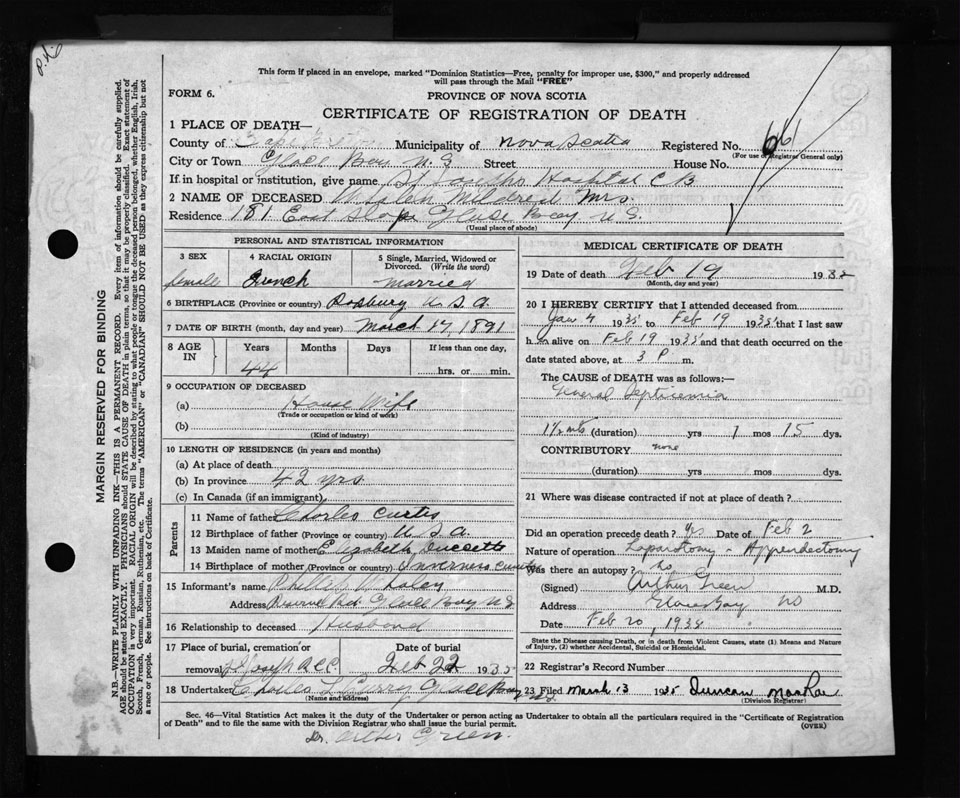 This form if placed in an envelope, marked "Dominion Statistics—Free, penalty for improper use, $300," and properly addressed
will pass through the Mail "FREE"
FORM 6.
PROVINCE OF NOVA SCOTIA
CERTIFICATE OF REGISTRATION OF DEATH
1 PLACE OF DEATH—
County of Cape Breton Municipality of Nova Scotia Registered No. 66
(For use of Registrar General only)
City or Town Glace Bay N.S Street House No.
If in hospital or institution, give name St Josephs Hospital C B
2 NAME OF DECEASED Whalen Mildred Mrs.
Residence 181 East Slope Glace Bay N.S.
(Usual place of abode)
PERSONAL AND STATISTICAL INFORMATION
3 SEX 4 RACIAL ORIGIN 5 Single, Married, Widowed or
Divorced. (Write the word)
female French married
6 BIRTHPLACE (Province or country) Roxbury U.S.A.
7 DATE OF BIRTH (month, day and year) March 17, 1891
8 AGE IN Years Months Days If less than one day,
44 hrs. or min.
9 OCCUPATION OF DECEASED
(a) House Wife
(Trade or occupation or kind of work)
(b)
(Kind of industry)
10 LENGTH OF RESIDENCE (in years and months)
(a) At place of death
(b) In province 42 yrs
(c) In Canada (if an immigrant)
Parents
11 Name of father Charles Curtis
12 Birthplace of father (Province or country) U.S.A
13 Maiden name of mother Elizabeth Doucette
14 Birthplace of mother (Province or country) Inverness
15 Informant's name Phillip
Address Glace Bay N.S.
16 Relationship to deceased Husband
17 Place of burial, cremation or Date of burial
removal St Joseph RCC Feb 22 1935
18 Undertaker Charles Glace Bay
(Name and address)
MEDICAL CERTIFICATE OF DEATH
19 Date of death Feb 19 1935
(Month, day and year)
20 I HEREBY CERTIFY that I attended deceased from
Jan 4 1935 to Feb 19 1935 that I last saw
h alive on Feb 19 1935 and that death occurred on the
date stated above, at 3 P m.
The CAUSE of DEATH was as follows:—
General Septicemia
1½ mts (duration) yrs 1 mos 15 dys.
CONTRIBUTORY none
(duration) yrs mos dys.
21 Where was disease contracted if not at place of death?
Did an operation precede death? Yes Date of Feb 2
Nature of operation Laparotomy - Appendectomy
Was there an autopsy? no
(Signed) Arthur Green M.D.
Address Glace Bay NS
Date Feb 20, 1935
State the Disease causing Death, or in death from Violent Causes, state (1) Means and Nature
of Injury, (2) whether Accidental, Suicidal or Homicidal.
22 Registrar's Record Number
23 Filed March 13 1935 Duncan
(Division Registrar)
Sec. 46—Vital Statistics Act makes it the duty of the Undertaker or person acting as Undertaker to obtain all the particulars required in the "Certificate of Registration
of Death" and to file the same with the Division Registrar who shall issue the burial permit.
(OVER)
Dr. Arthur Green.
MARGIN RESERVED FOR BINDING
N.B.—WRITE PLAINLY WITH UNFADING INK—THIS IS A PERMANENT RECORD. Every item of information should be carefully supplied.
AGE should be stated EXACTLY. PHYSICIANS should STATE CAUSE OF DEATH in plain terms, so that it may be properly classified. Exact statement of
OCCUPATION is very important. RACIAL ORIGIN will be described by stating to what people or tongue the deceased person belonged, whether English, Irish,
Scotch, French, German, Russian, Ruthenian, etc. The terms "AMERICAN" or "CANADIAN" SHOULD NOT BE USED as they express citizenship but not
a race or people. See instructions on back of Certificate.